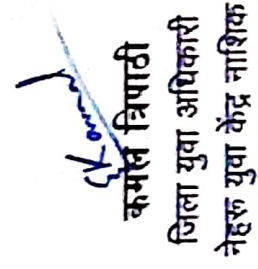 कमल त्रिपाठी
जिला युवा अधिकारी
नेहरु युवा केंद्र नाशिक